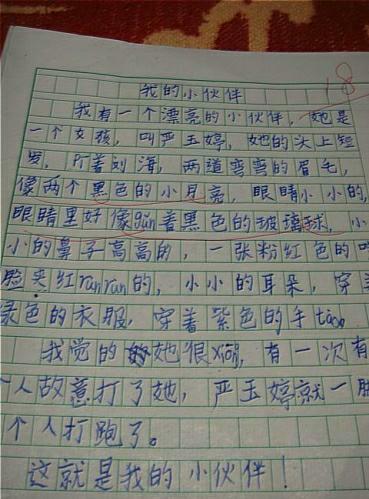 我的小伙伴
18
我有一个漂亮的小伙伴，她是
一个女孩，叫严玉婷，她的头上短
发，着刘海，两道弯弯的眉毛，
像两个黑色的小月亮，眼睛小小的，
眼睛里好像gǔn着黑色的玻璃球，小
小的鼻子高高的，一张粉红色的
脸夹红runrun的，小小的耳朵，穿
色的衣服，穿着紫色的手tào
我觉的她很xiōng，有一次有
一人故意打了她，严玉婷就一
个人打跑了。
这就是我的小伙伴！